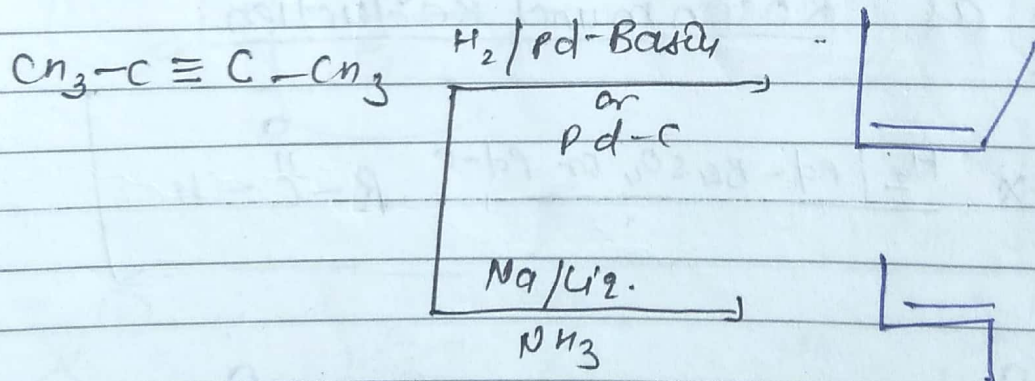 CH3-C≡C-CH3
H2/Pd-BaSO4
or
Pd-C
Na/Liq.
NH3